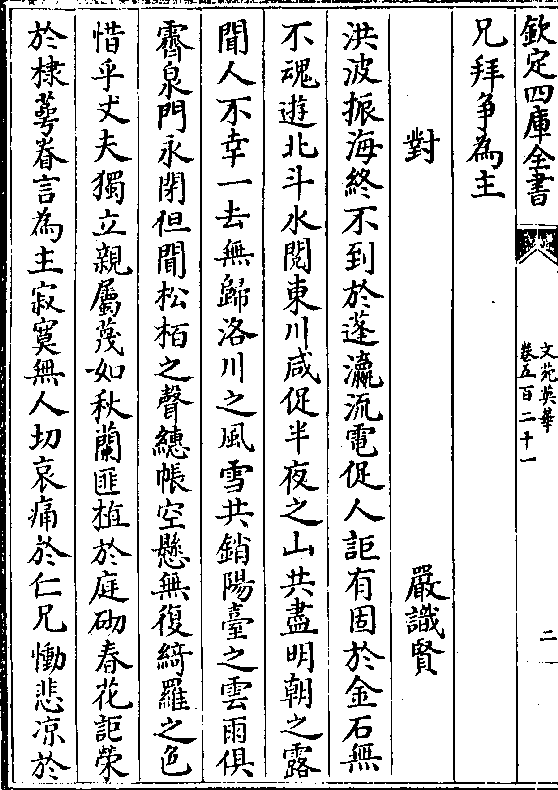 欽定四庫全書
文苑英華
卷五百二十一
二
兄拜爭為主
對
嚴識賢
洪波振海終不到於蓬瀛流電促人詎有固於金石無
不魂遊北斗水閱東川咸促半夜之山共盡明朝之露
聞人不幸一去無歸洛川之風雪共銷陽臺之雲雨俱
霽泉門永閉但聞松栢之聲繐帳空懸無復綺羅之色
惜乎丈夫獨立親屬蔑如秋蘭匪植於庭砌春花詎榮
於棣萼眷言為主寂寞無人切哀痛於仁兄慟悲凉於